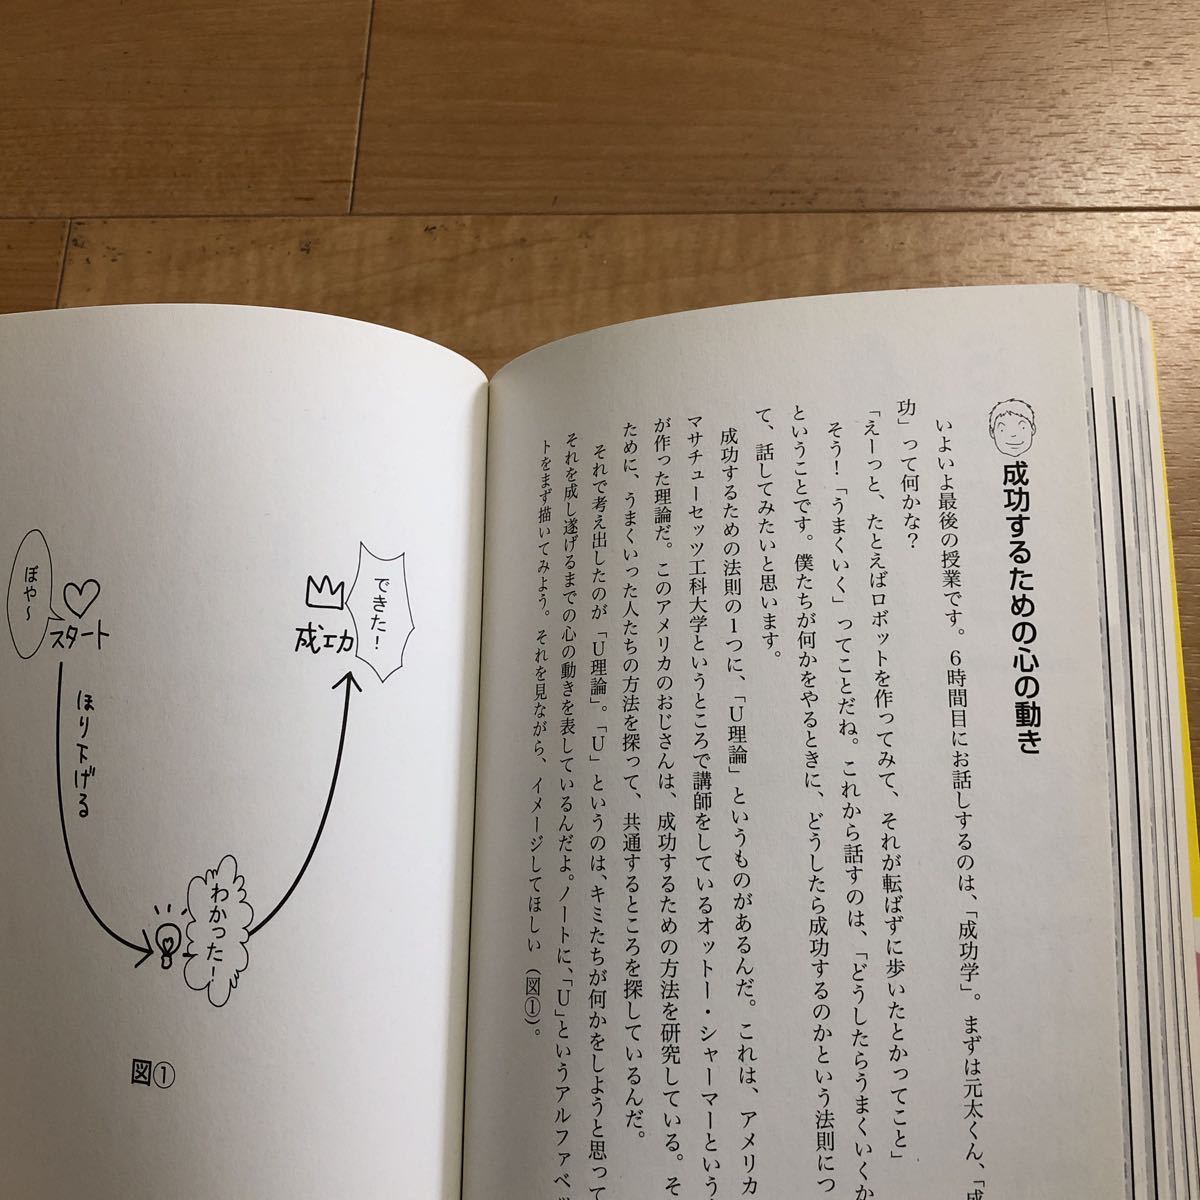 成功するための心の動き
いよいよ最後の授業です。6時間目にお話しするのは、「成功学」。まずは元太くん、「成
功」って何かな？
「えーっと、たとえばロボットを作ってみて、それが転ばずに歩いたとかってこと」
そう！「うまくいく」ってことだね。これから話すのは、「どうしたらうまくいくか
ということです。僕たちが何かをやるときに、どうしたら成功するのかという法則につ
て、話してみたいと思います。
成功するための法則の1つに、「U理論」というものがあるんだ。これは、アメリカ
マサチューセッツ工科大学というところで講師をしているオットー・シャーマーという
が作った理論だ。このアメリカのおじさんは、成功するための方法を研究している。そ
ために、うまくいった人たちの方法を探って、共通するところを探しているんだ。
それで考え出したのが「U理論」。「U」というのは、キミたちが何かをしようと思って
それを成し遂げるまでの心の動きを表しているんだよ。ノートに、「U」というアルファベッ
トをまず描いてみよう。それを見ながら、イメージしてほしい（図①）。
できた！
成功
ぼや〜
スタート
ほり下げる
わかった！
図①